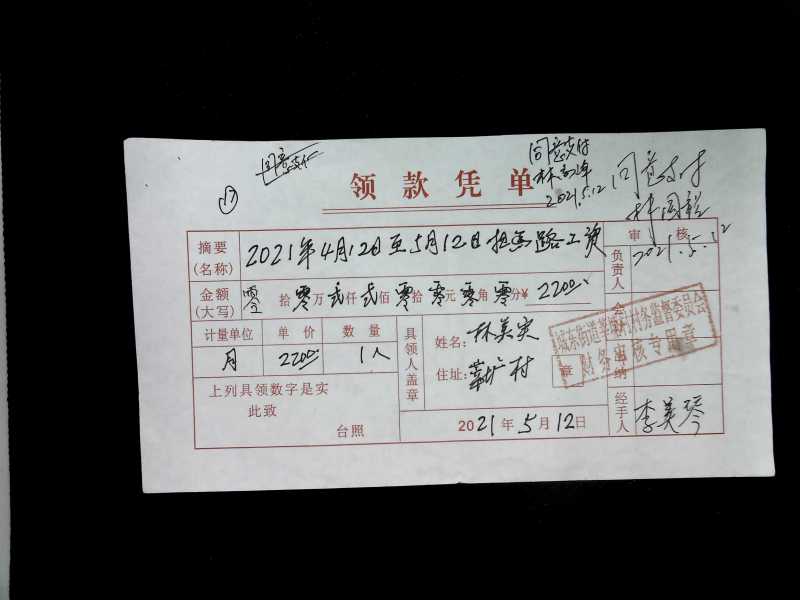 同意支付
同意支付
林
2021.5.12
同意支付
林国
2021.5.12
⑰
领款凭单
摘要(名称) 2021年4月12日至5月12日 路工资
金额(大写) 零拾零万贰仟贰佰零拾零元零角零分¥ 2200.
计量单位 单价 数量
月 2200. 1人
上列具领数字是实
此致
台照
具领人盖章
姓名: 林美实
住址: 村
章
2021年5月12日
审核
负责人
会计
出纳
经手人 李美琴
城东街道 村村务监督委员会
财务审核专用章